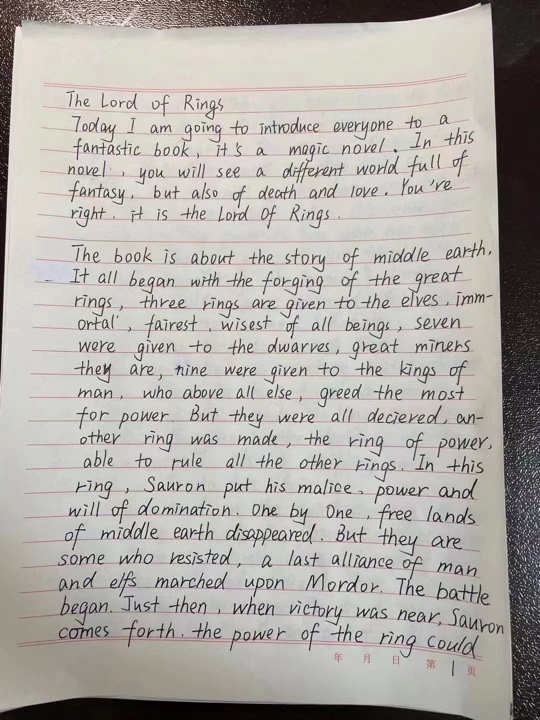 The Lord of Rings
Today I am going to introduce everyone to a
fantastic book, it's a magic novel. In this
novel, you will see a different world full of
fantasy, but also of death and love. You're
right. it is the Lord Of Rings.
The book is about the story of middle earth.
It all began with the forging of the great
rings, three rings are given to the elves, imm-
ortal, fairest, wisest of all beings, seven
were given to the dwarves, great miners
they are, nine were given to the kings of
man, who above all else, greed the most
for power. But they were all deciered, an-
other ring was made, the ring of power,
able to rule all the other rings. In this
ring, Sauron put his malice, power and
will of domination. One by One, free lands
of middle earth disappeared. But they are
some who resisted, a last alliance of man
and elfs marched upon Mordor. The battle
began. Just then, when victory was near, Sauron
comes forth. the power of the ring could
年 月 日 第 1 页